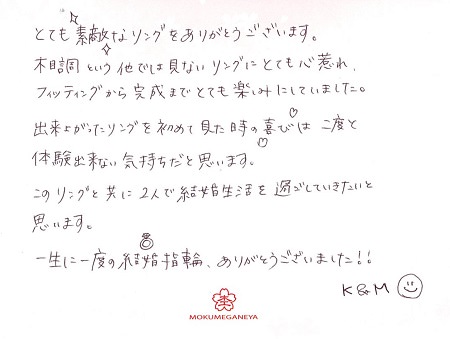 とても素敵なリングをありがとうございます。
木目調という他では見ないリングにとても心惹れ、
フィッティングから完成までとても楽しみにしていました。
出来上がったリングを初めて見た時の喜びは二度と
体験出来ない気持ちだと思います。
このリングと共に2人で結婚生活を過ごしていきたいと
思います。
一生に一度の結婚指輪、ありがとうございました!!
K&M
MOKUMEGANEYA